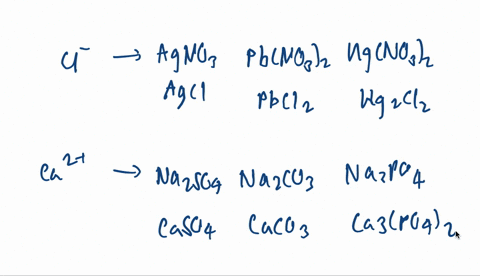 Cl⁻ → AgNO3 Pb(NO3)2 Hg(NO3)2
AgCl PbCl2 Hg2Cl2
Ca2+ → Na2SO4 Na2CO3 Na3PO4
CaSO4 CaCO3 Ca3(PO4)2